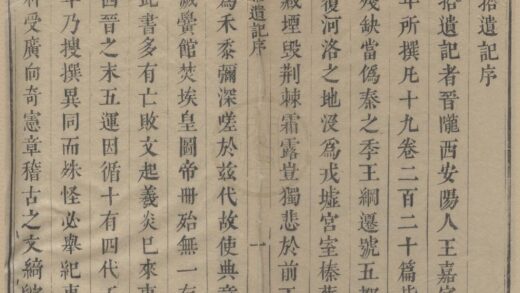 拾遺記序
拾遺記者晉隴西安陽人王嘉字
年所撰凡十九卷二百二十篇皆
殘缺當僞秦之季王綱遷號五都
復河洛之地没爲戎墟宮室榛蕪
蔽堙毀荆棘霜露豈獨悲於前王
拾遺記序 一
爲禾黍彌深嗟於兹代故使典章
滅黌館焚埃皇圖帝冊殆無一存
此書多有亡敗文起羲炎已來事
西晉之末五運因循十有四代王
年乃搜撰異同而殊怪必舉紀事
愛廣尚奇憲章稽古之文綺綜